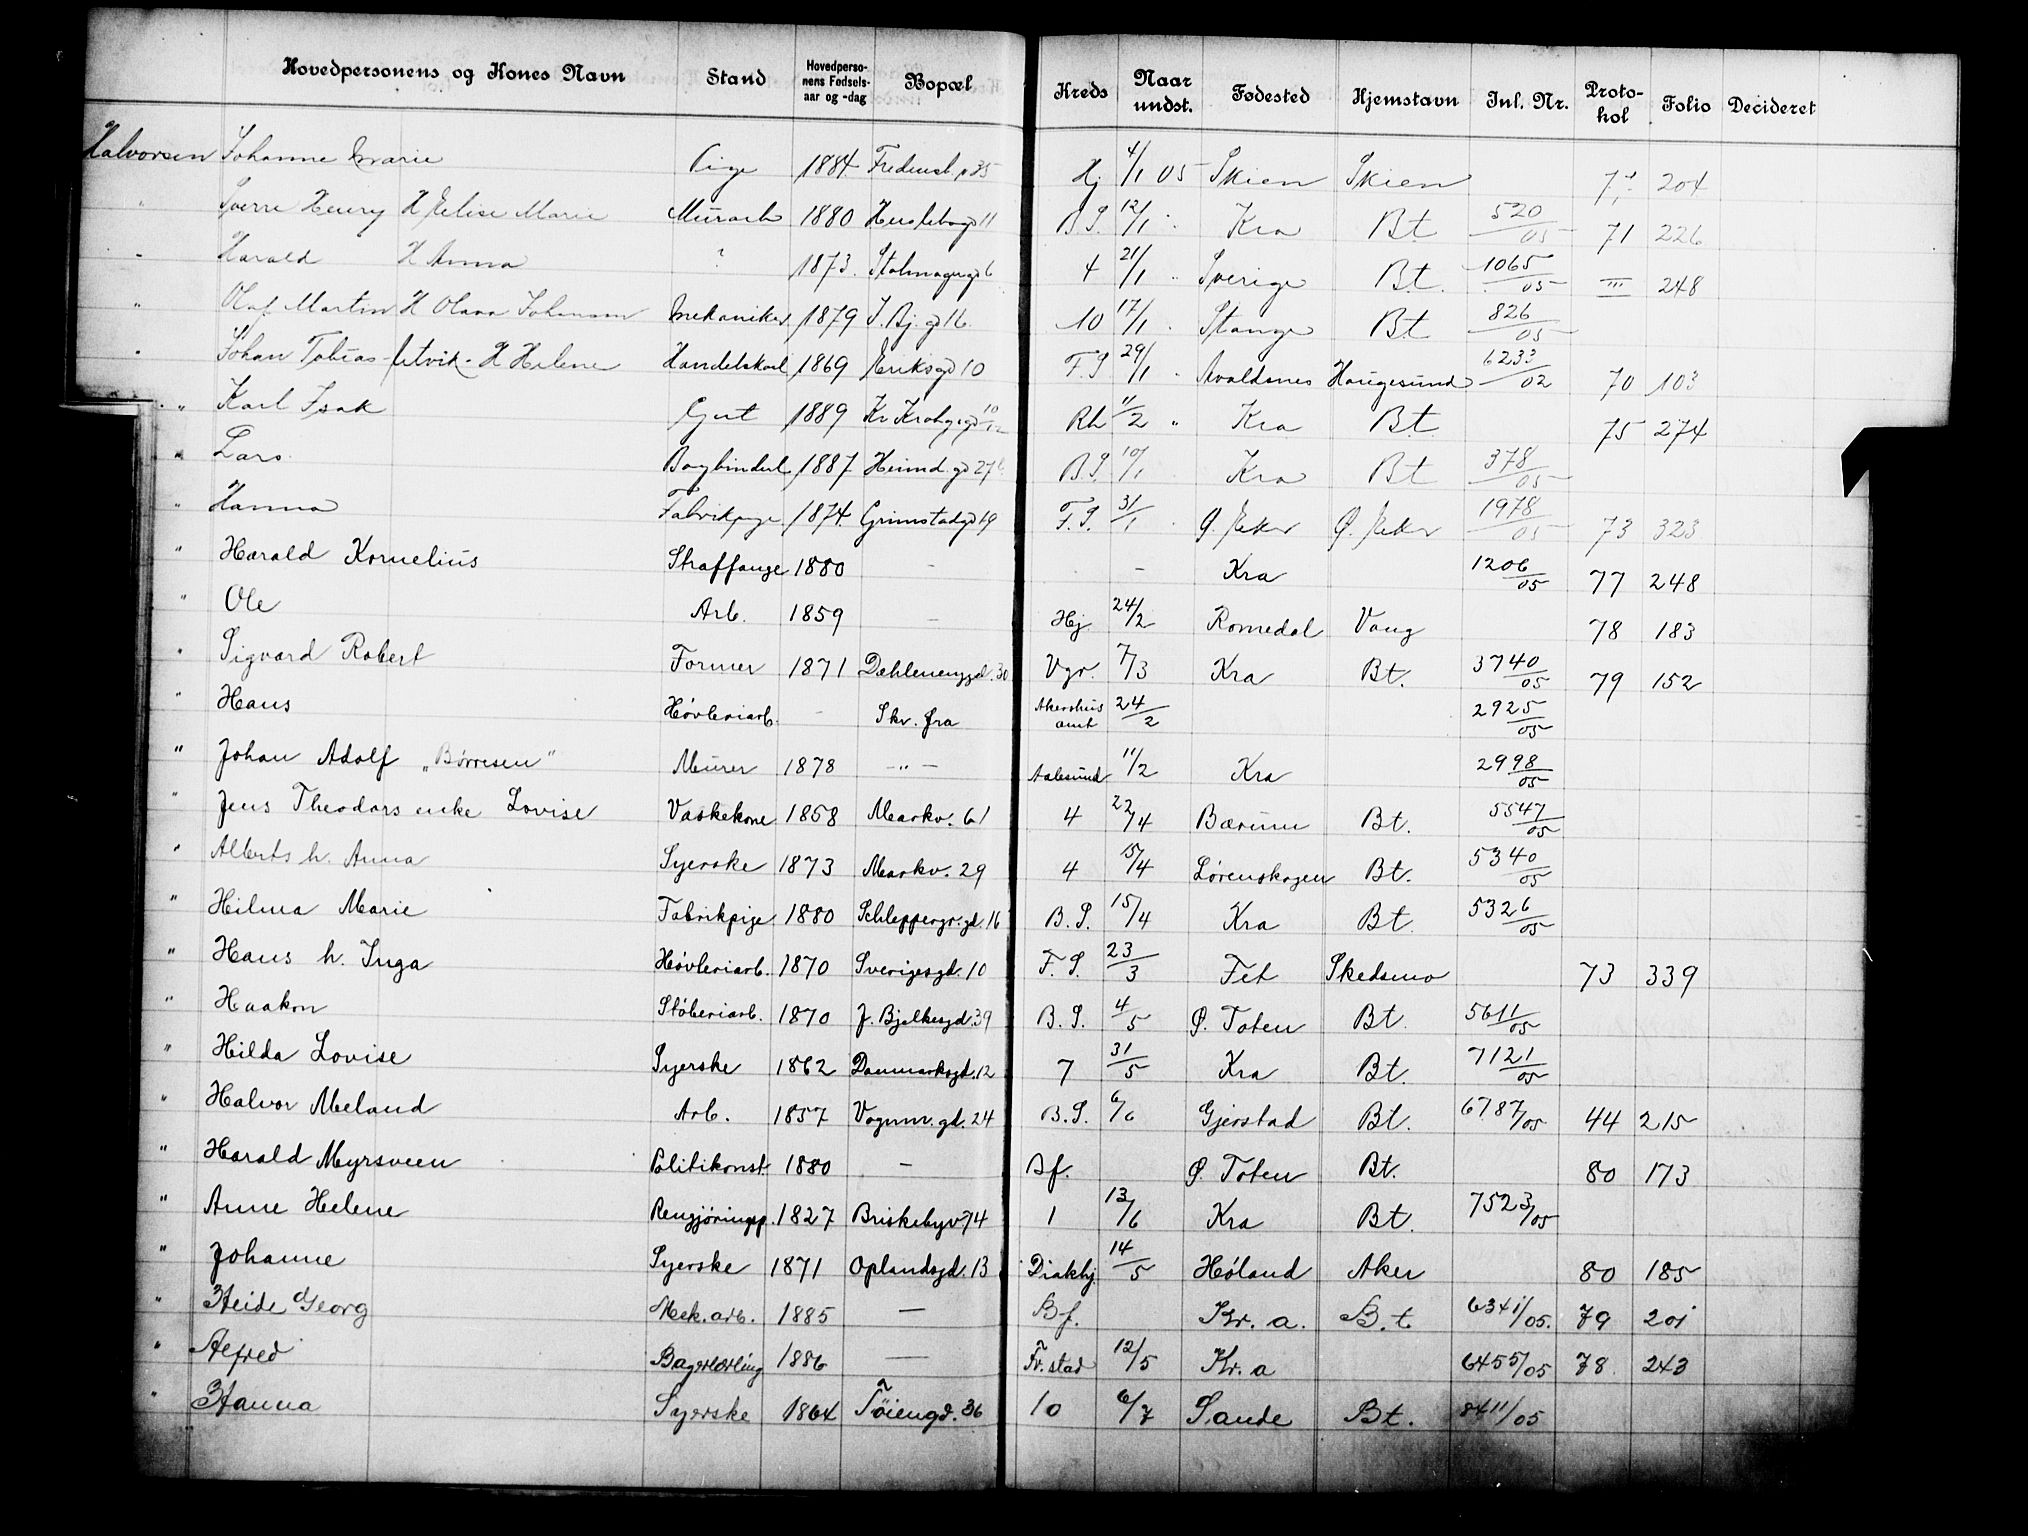 Hovedpersonens og Kones Navn Stand Hovedpersonens Fødselsaar og -dag Bopæl Kreds Naar undst. Fødested Hjemstavn Inl. Nr. Protokol Folio Decideret
Halvorsen Johanne Marie Pige 1884 Fredensb. v 35 Hj 4/1 05 Skien Skien 204
" Sverre Henry H Elise Marie Murarb 1880 11 B.S. 12/1 " Kra Bt 520/05 71 226
" Harald H Anna ? 1873. Stolmagergd 6 4 21/1 " Sverige Bt. 1065/05 248
" Olaf Martin H Olava Johansen Mekaniker 1879 J. Bj. gd 16. 10 17/1 " Stange Bt 826/05
" Johan Tobias Utvik - H Helene Handelskarl 1869 Eriksgd 10 F.S 29/1 " Avaldsnes Haugesund 6233/02 70 103
" Karl Isak Gut 1889 Kr Krohgsgd 10/12 Rh 11/2 " Kra Bt 75 274
" Lars Bogbinderl 1887 Heimd. gd 27 B.S. 10/1 Kra Bt 378/05
" Hanna Fabrikpige 1874 Grimstadgd 19 F.S. 31/1 " Ø. Eker Ø. Eker 1978/05 73 323
" Harald Kornelius Straffange 1880 - - Kra 1206/05 77 248
" Ole Arb. 1859 - Hj. 24/2 Romedal Vang 78 183
" Sigvard Robert Former 1871 Dæhlenenggd. 30 Vgr. 7/3 Kra Bt. 3740/05 79 152
" Hans Høvleriarb. - Skr. fra Akershus amt 24/2 2925/05
" Johan Adolf „Børresen" Murer 1878 - " - Aalesund 11/2 Kra 2998/05
" Jens Theodors enke Lovise Vaskekone 1858 Markv. 61 4 22/4 Bærum Bt. 5547/05
" Alberts h. Anna Syerske 1873 Markv. 29 4 15/4 Lørenskogen Bt. 5340/05
" Hilma Marie Fabrikpige 1880 Schleppegr. gd. 16 B.S. 15/4 Kra Bt. 5326/05
" Hans h. Inga Høvleriarb. 1870 Sverigesgd. 10 F.S. 23/3 Fet Skedsmo 73 339
" Haakon Støberiarb. 1870 J. Bjelkesgd. 39 B.S. 4/5 Ø. Toten Bt. 5611/05
" Hilda Lovise Syerske 1862 Danmarksgd. 12 7 31/5 Kra Bt. 7121/05
" Halvor Meland Arb. 1857 Vognm. gd. 24 B.S. 6/6 Gjerstad Bt. 6787/05 44 215
" Harald Myrsveen Politikonst. 1880 - Bf. Ø. Toten Bt. 80 173
" Anne Helene Rengjøringsp. 1827 Briskebyv 74 1 13/6 Kra Bt. 7523/05
" Johanne Syerske 1871 Oplandsgd. 13 Diakhj. 14/5 Høland Aker 80 185
" Heide Georg Mek. arb. 1885 - Bf. Kr. a. B.t 6341/05. 79 201
" Alfred Bagerlærling 1886 - Fr. stad 12/5 Kr. a 6455/05 78. 243
" Hanna Syerske 1864 Tøiengd. 36 10 6/7 Sande Bt. 8411/05